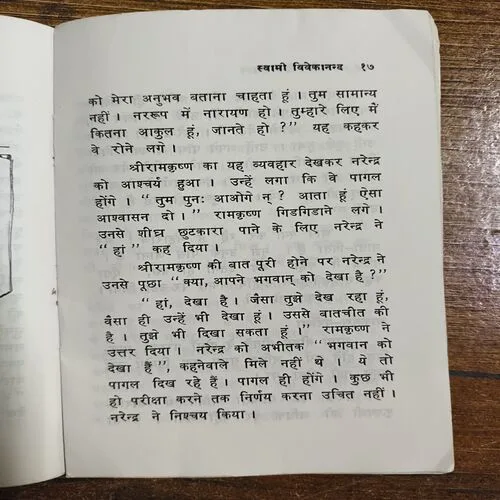 स्वामी विवेकानन्द १७
को मेरा अनुभव बताना चाहता हूं । तुम सामान्य
नहीं । नररूप में नारायण हो । तुम्हारे लिए में
कितना आकुल हूं, जानते हो ?” यह कहकर
वे रोने लगे ।
श्रीरामकृष्ण का यह व्यवहार देखकर नरेन्द्र
को आश्चर्य हुआ । उन्हें लगा कि वे पागल
होंगे । “ तुम पुनः आओगे न् ? आता हूं ऐसा
आश्वासन दो । ” रामकृष्ण गिडगिडाने लगे ।
उनसे शीघ्र छुटकारा पाने के लिए नरेन्द्र ने
“ हां ” कह दिया ।
श्रीरामकृष्ण की बात पूरी होने पर नरेन्द्र ने
उनसे पूछा “ क्या, आपने भगवान् को देखा है ? ”
“ हां, देखा है । जैसा तुझे देख रहा हूं,
वैसा ही उन्हें भी देखा हूं । उससे बातचीत की
है । तुझे भी दिखा सकता हूं ।” रामकृष्ण ने
उत्तर दिया । नरेन्द्र को अभीतक “ भगवान को
देखा हैं ”, कहनेवाले मिले नहीं थे । ये तो
पागल दिख रहे हैं । पागल ही होंगे । कुछ भी
हो परीक्षा करने तक निर्णय करना उचित नहीं ।
नरेन्द्र ने निश्चय किया ।